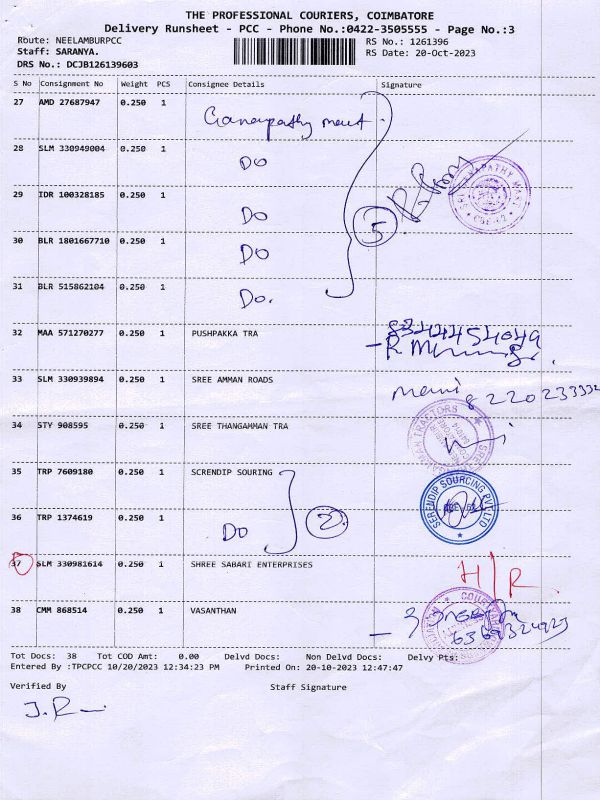 THE PROFESSIONAL COURIERS, COIMBATORE
Delivery Runsheet - PCC - Phone No.:0422-3505555 - Page No.:3
Route: NEELAMBURPCC RS No.: 1261396
Staff: SARANYA. RS Date: 20-Oct-2023
DRS No.: DCJB126139603
S No Consignment No Weight PCS Consignee Details Signature
27 AMD 27687947 0.250 1 Ganapathy
28 SLM 330949004 0.250 1 DO
29 IDR 100328185 0.250 1 DO
5
30 BLR 1801667710 0.250 1 DO
31 BLR 515862104 0.250 1 DO.
32 MAA 571270277 0.250 1 PUSHPAKKA TRA
33 SLM 330939894 0.250 1 SREE AMMAN ROADS Mani
34 STY 908595 0.250 1 SREE THANGAMMAN TRA
TRACTORS
35 TRP 7609180 0.250 1 SCRENDIP SOURING
SERENDIP SOURCING PVT LTD
36 TRP 1374619 0.250 1 DO 2
37 SLM 330981614 0.250 1 SHREE SABARI ENTERPRISES H/R
38 CMM 868514 0.250 1 VASANTHAN
Tot Docs: 38 Tot COD Amt: 0.00 Delvd Docs: Non Delvd Docs: Delvy Pts:
Entered By :TPCPCC 10/20/2023 12:34:23 PM Printed On: 20-10-2023 12:47:47
Verified By Staff Signature